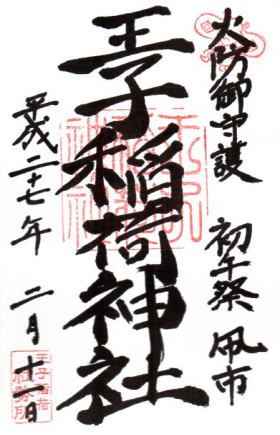 火防御守護　初午祭　凧市
王子稲荷神社
平成二十七年　二月　十一日
王子稲荷
社務所